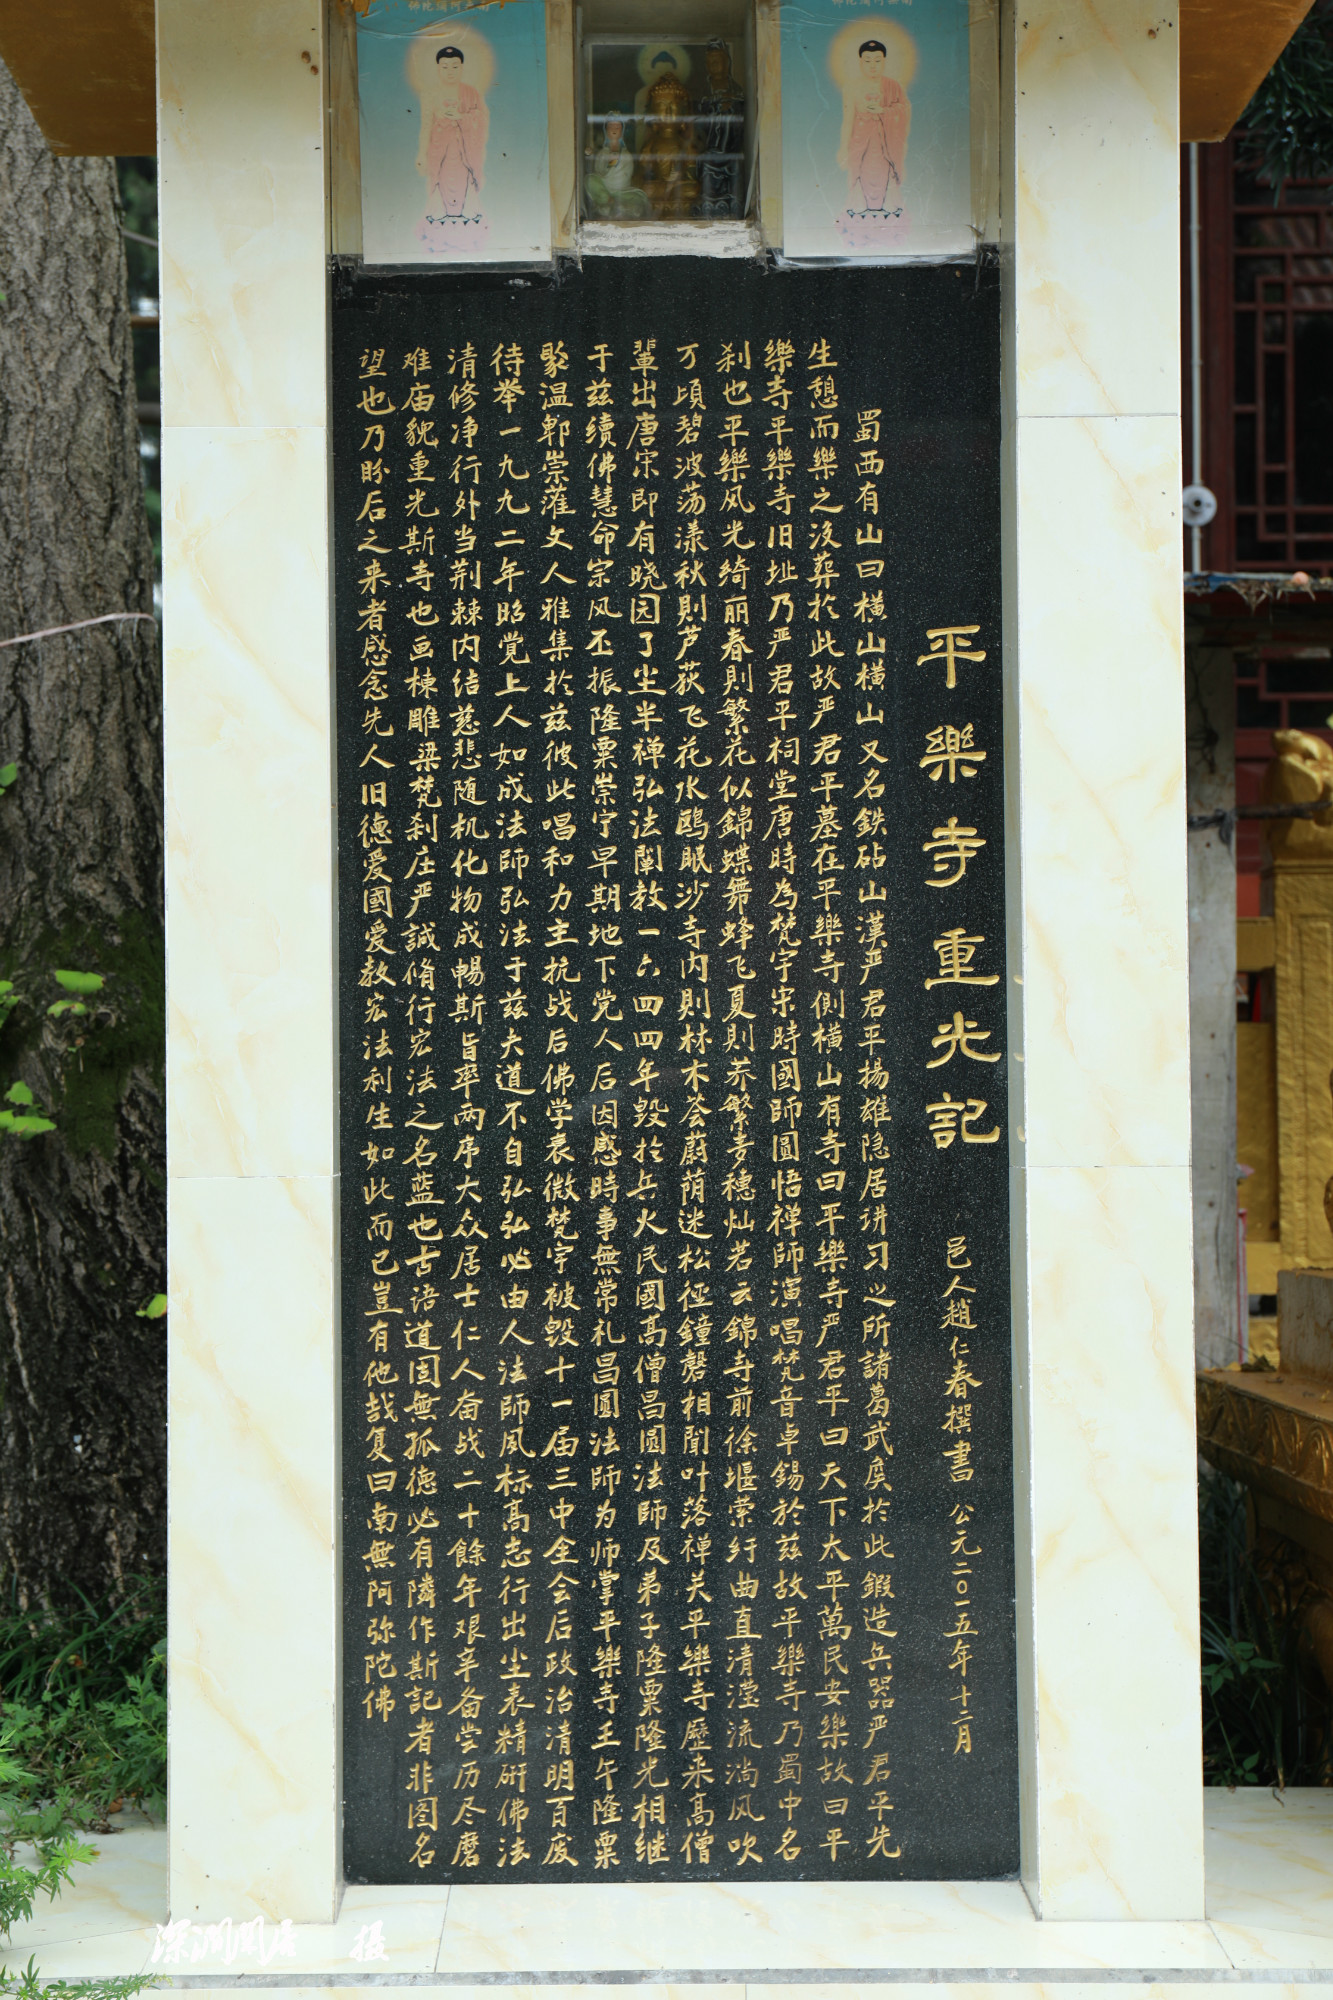 南無阿彌陀佛
南無阿彌陀佛
平樂寺重光記
邑人趙仁春撰書 公元二〇一五年十二月
蜀西有山曰横山横山又名鉄砧山漢严君平揚雄隐居讲习之所諸葛武矦於此鍛造兵器严君平先
生憩而樂之没葬於此故严君平墓在平樂寺側横山有寺曰平樂寺严君平曰天下太平萬民安樂故曰平
樂寺平樂寺旧址乃严君平祠堂唐時為梵宇宋時國師圓悟禅師演唱梵音卓錫於兹故平樂寺乃蜀中名
刹也平樂风光绮丽春則繁花似錦蝶舞蜂飞夏則荞繁麦穗灿若云錦寺前徐堰萦纡曲直清滢流淌风吹
万頃碧波荡漾秋則芦荻飞花水鸥眠沙寺内則林木荟蔚荫迷松径鐘磬相聞叶落禅关平樂寺歷来高僧
輩出唐宋即有晓园了尘半禅弘法闡教一六四四年毁於兵火民國高僧昌圓法師及弟子隆粟隆光相继
于兹續佛慧命宗风丕振隆粟崇宁早期地下党人后因感時事無常礼昌圓法師为师掌平樂寺壬午隆粟
聚温郫崇灌文人雅集於兹彼此唱和力主抗战后佛学衰微梵宇被毁十一届三中全会后政治清明百废
待举一九九二年昭覚上人如成法師弘法于兹夫道不自弘弘必由人法師风标高志行出尘表精研佛法
清修净行外当荆棘内结慈悲随机化物成暢斯旨率两序大众居士仁人奋战二十餘年艰辛备尝历尽磨
难庙貌重光斯寺也画棟雕梁梵刹庄严誠脩行宏法之名蓝也古语道固無孤德必有隣作斯記者非图名
望也乃盼后之来者感念先人旧德爱國爱教宏法利生如此而已豈有他哉复曰南無阿弥陀佛
深澗閑居 摄